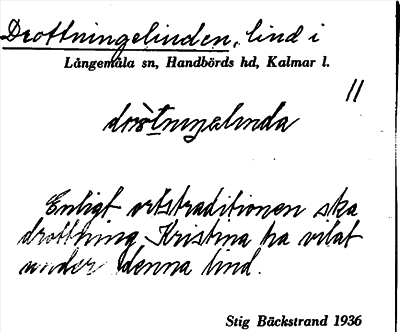 Drottningelinden, lind i
Långemåla sn, Handbörds hd, Kalmar l.
11
Enligt ortstraditionen ska
drottning Kristina ha vilat
under denna lind.
Stig Bäckstrand 1936